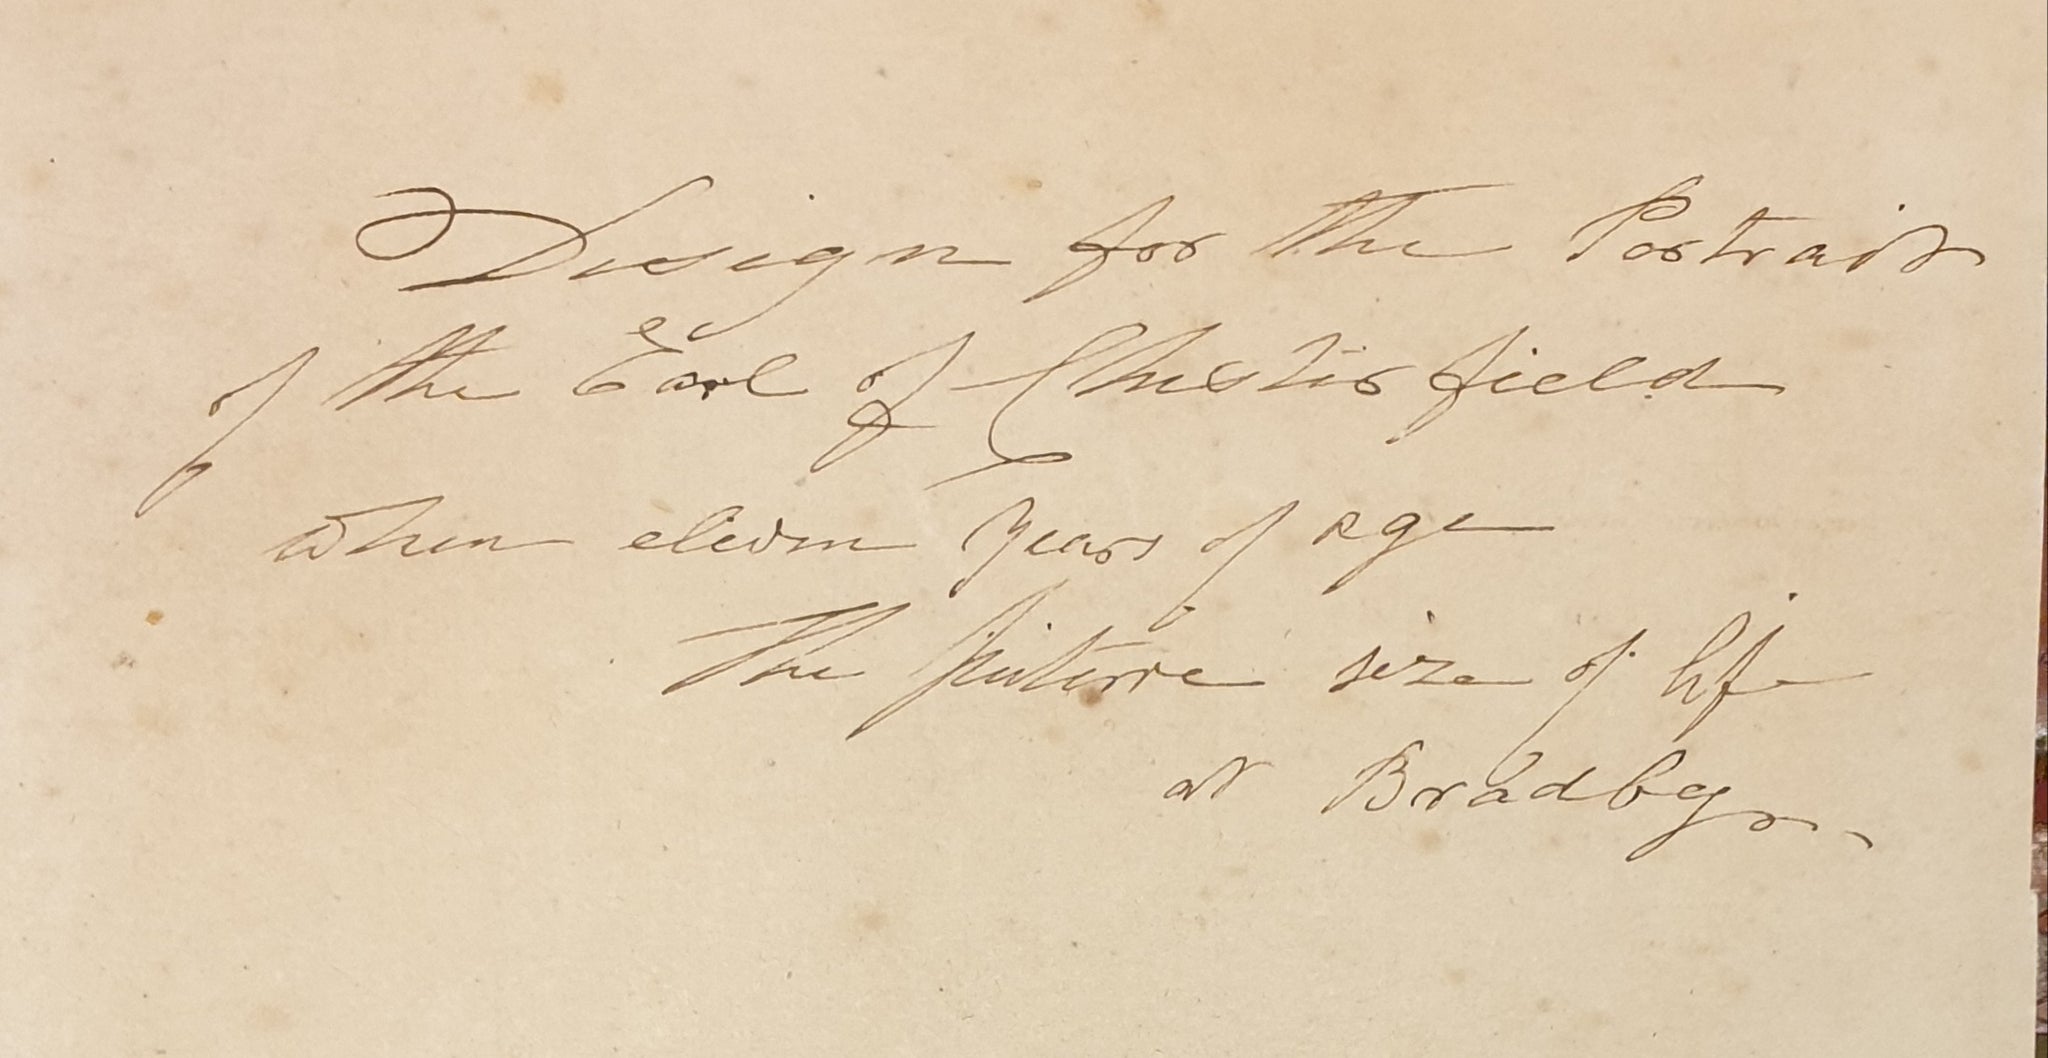 Design for the Portrait
of the Earl of Chesterfield
when eleven years of age
The picture size of life
at Bradby